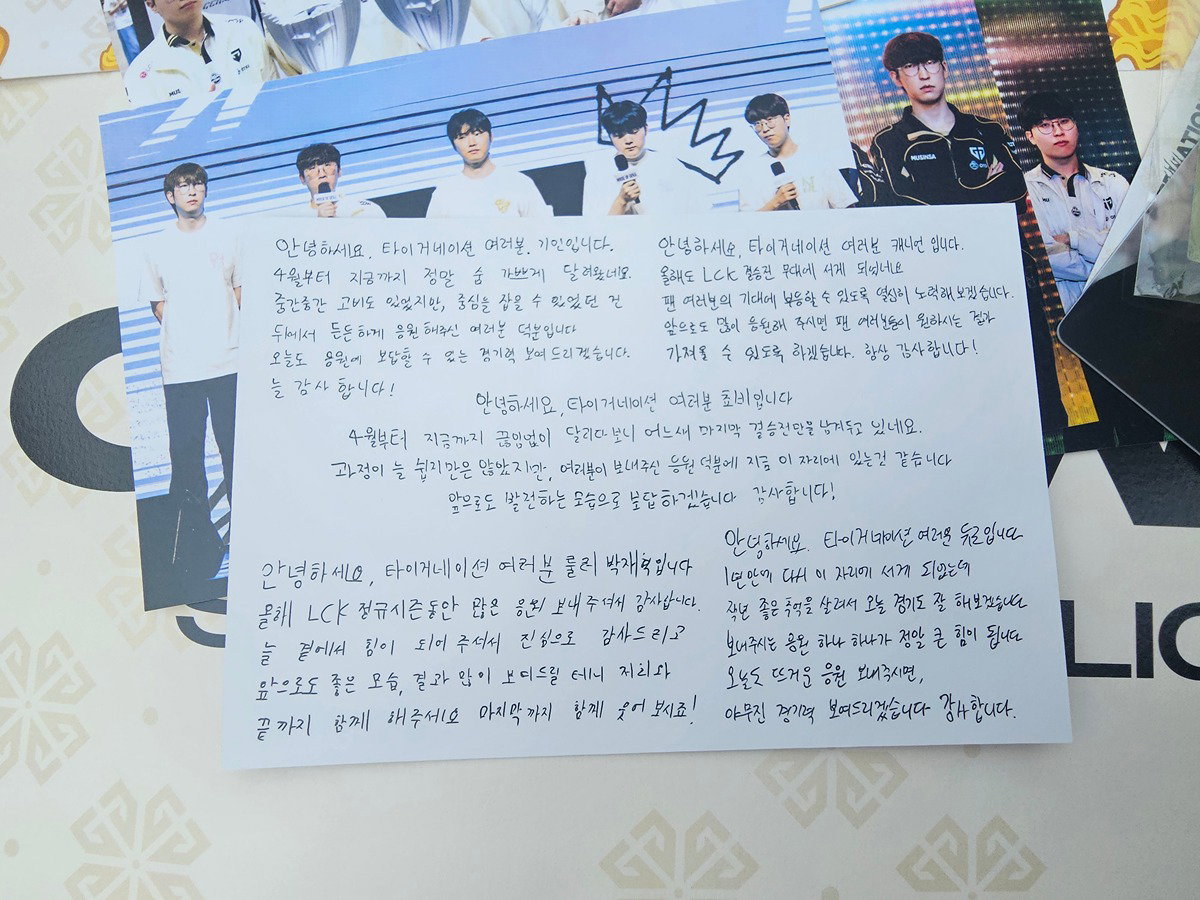 MUSINSA
안녕하세요, 타이거네이션 여러분. 기인입니다.
4월부터 지금까지 정말 숨 가쁘게 달려왔네요.
중간중간 고비도 있었지만, 중심을 잡을 수 있었던 건
뒤에서 든든하게 응원해주신 여러분 덕분입니다
오늘도 응원에 보답할 수 있는 경기력 보여드리겠습니다.
늘 감사합니다!
안녕하세요, 타이거네이션 여러분 캐니언 입니다.
올해도 LCK 결승전 무대에 서게 되었네요
팬 여러분의 기대에 부응할 수 있도록 열심히 노력해 보겠습니다.
앞으로도 많이 응원해 주시면 팬 여러분들이 원하시는 결과
가져올 수 있도록 하겠습니다. 항상 감사합니다!
안녕하세요, 타이거네이션 여러분 쵸비입니다
4월부터 지금까지 끊임없이 달리다보니 어느새 마지막 결승전만을 남겨두고 있네요.
과정이 늘 쉽지만은 않았지만, 여러분이 보내주신 응원 덕분에 지금 이 자리에 있는건 같습니다
앞으로도 발전하는 모습으로 보답하겠습니다 감사합니다!
안녕하세요, 타이거네이션 여러분 룰러 박재혁입니다
올해 LCK 정규시즌동안 많은 응원 보내주셔서 감사합니다.
늘 곁에서 힘이 되어 주셔서 진심으로 감사드리고
앞으로도 좋은 모습, 결과 많이 보여드릴 테니 저희와
끝까지 함께 해주세요 마지막까지 함께 웃어 보시죠!
안녕하세요. 타이거네이션 여러분 듀로입니다
1년만에 다시 이 자리에 서게 되었는데
작년 좋은 추억을 살려서 오늘 경기도 잘 해보겠습니다
보내주시는 응원 하나 하나가 정말 큰 힘이 됩니다
오늘도 뜨거운 응원 보내주시면,
야무진 경기력 보여드리겠습니다 감사합니다.